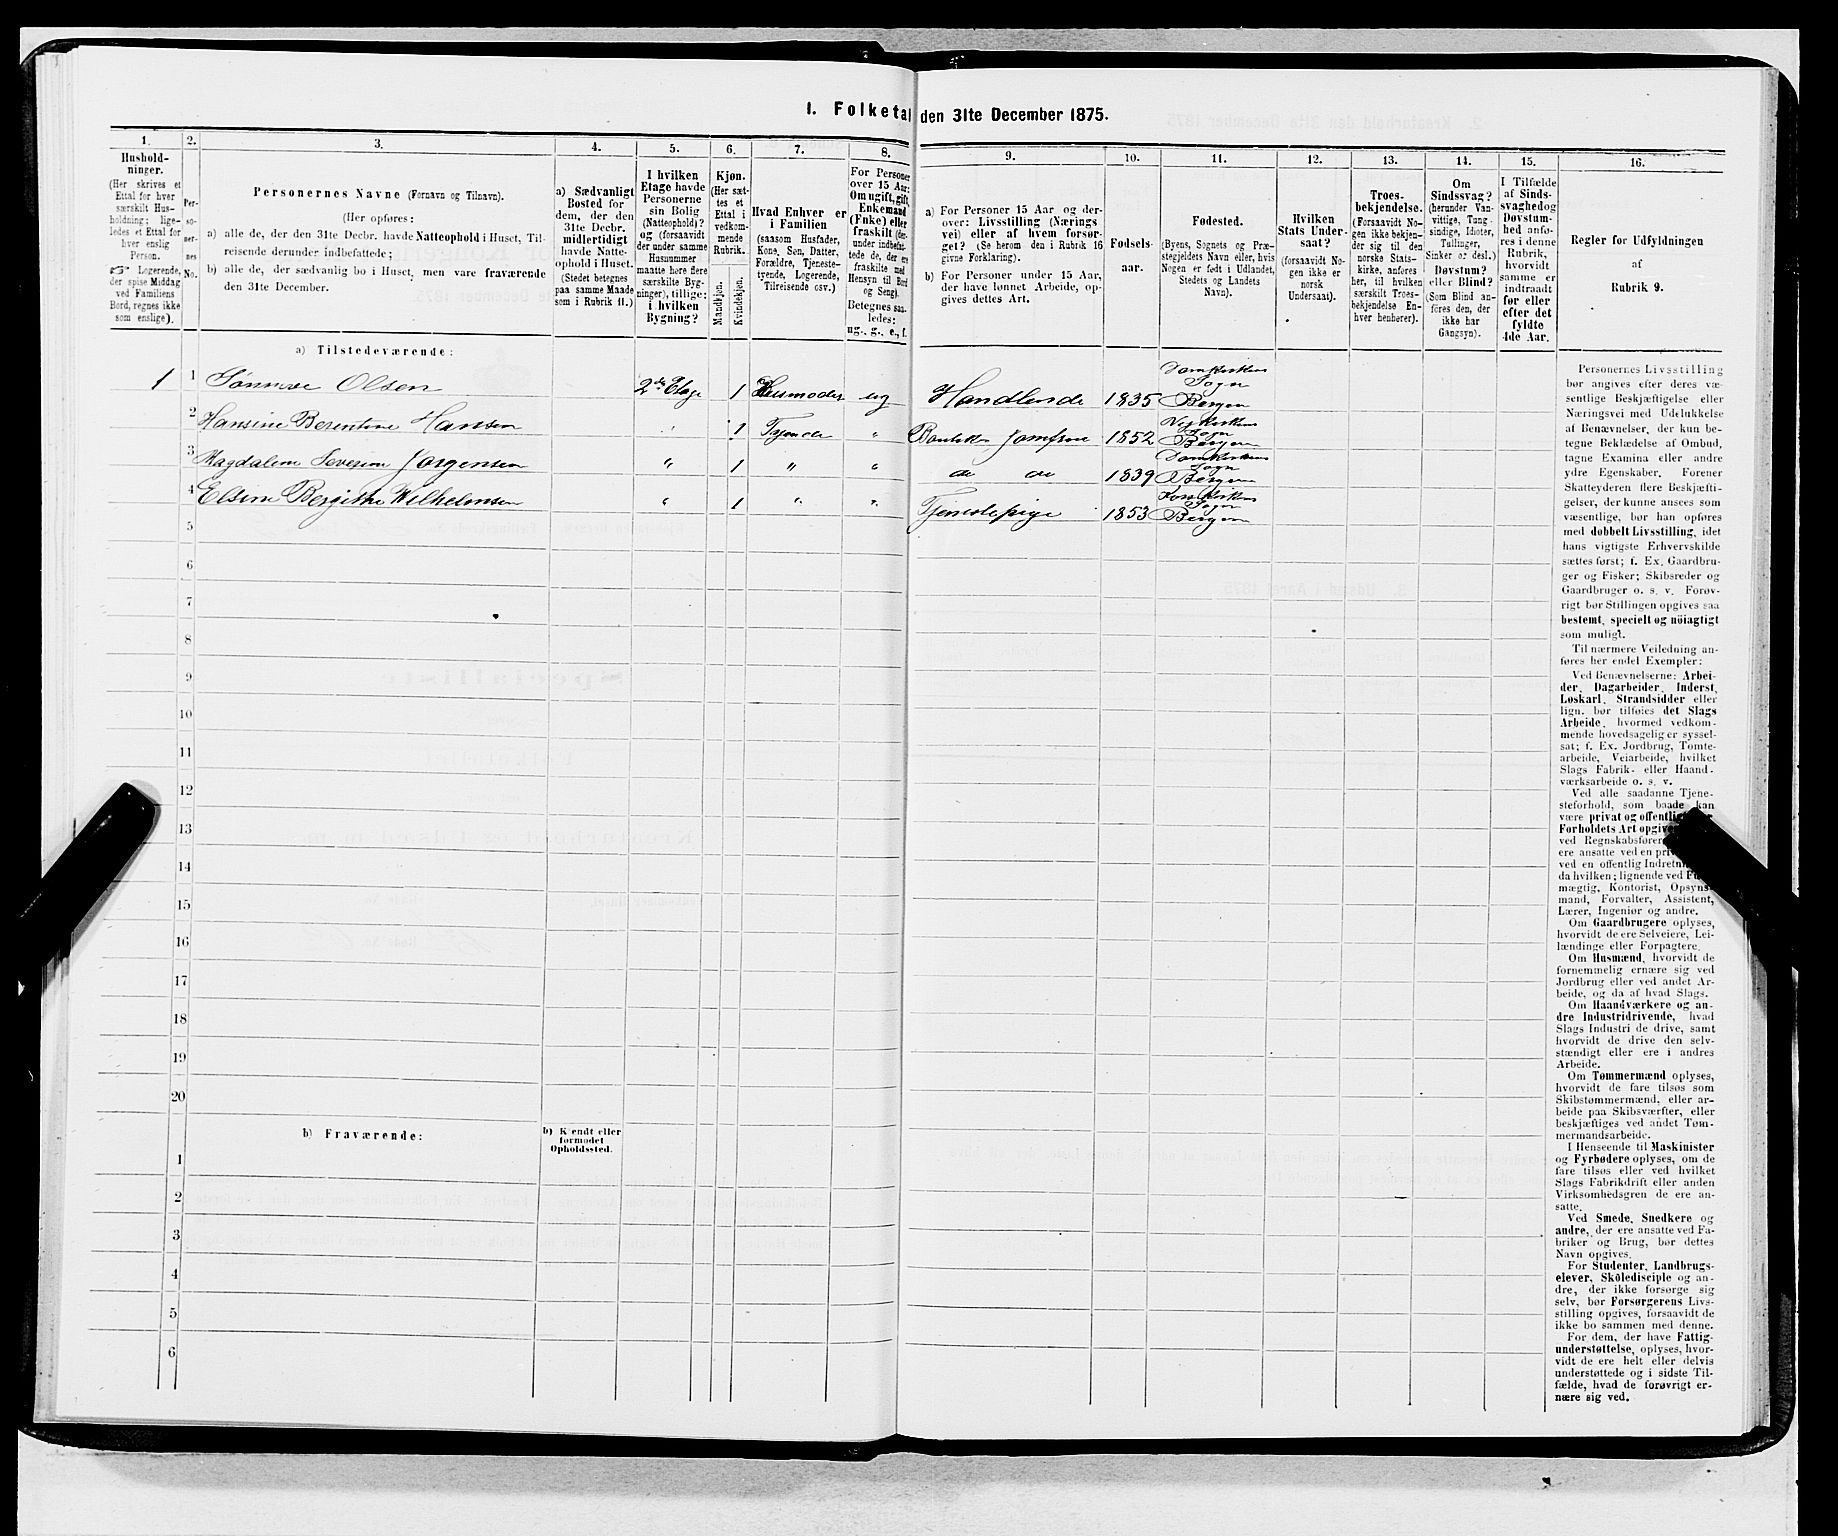 1. Folketal den 31te December 1875.
1.
Hushold-
ninger.
(Her skrives et
Ettal for hver
særskilt Hus-
holdning; lige-
ledes et Ettal for
hver enslig
Person.
☞ Logerende,
der spise Middag
ved Familiens
Bord, regnes ikke
som enslige).
2.
Per-
so-
ner-
nes
No.
3.
Personernes Navne (Fornavn og Tilnavn).
(Her opføres:
a) alle de, der den 31te Decbr. havde Natteophold i Huset, Til-
reisende derunder indbefattede;
b) alle de, der sædvanlig bo i Huset, men vare fraværende
den 31te December.
4.
a) Sædvanligt
Bosted for
dem, der den
31te Decbr.
midlertidigt
havde Natte-
ophold i Huset.
(Stedet betegnes
paa samme Maade
som i Rubrik 11.)
5.
I hvilken
Etage havde
Personerne
sin Bolig
(Natteophold)?
og (forsaavidt
der under samme
Husnummer
maatte høre flere
særskilte Byg-
ninger), tillige:
i hvilken
Bygning?
6.
Kjøn.
(Her sæt-
tes et
Ettal i
vedkom-
mende
Rubrik.
Mandkjøn.
Kvindekjøn.
7.
Hvad Enhver er
i Familien
(saasom Husfader,
Kone, Søn, Datter,
Forældre, Tjeneste-
tyende, Logerende,
Tilreisende osv.)
8.
For Personer
over 15 Aar:
Om ugift, gift,
Enkemand
(Enke) eller
fraskilt (der-
under indbefat-
tede de, der ere
fraskilte med
Hensyn til Bord
og Seng).
Betegnes saa-
ledes:
ug., g., e., f.
9.
a) For Personer 15 Aar og der-
over: Livsstilling (Nærings-
vei) eller af hvem forsør-
get? (Se herom den i Rubrik 16
givne Forklaring).
b) For Personer under 15 Aar,
der have lønnet Arbeide, op-
gives dettes Art.
10.
Fødsels-
aar.
11.
Fødested.
(Byens, Sognets og Præ-
stegjeldets Navn eller, hvis
Nogen er født i Udlandet,
Stedets og Landets
Navn).
12.
Hvilken
Stats Under-
saat?
(forsaavidt No-
gen ikke er
norsk
Undersaat).
13.
Troes-
bekjendelse.
(Forsaavidt No-
gen ikke bekjen-
der sig til den
norske Stats-
kirke, anføres
her, til hvilken
særskilt Troes-
bekjendelse En-
hver henhører).
14.
Om
Sindssvag?
(herunder Van-
vittige, Tung-
sindige, Idioter,
Tullinger,
Sinker o. desl.)
Døvstum?
eller Blind?
(Som Blind an-
føres den, der
ikke har
Gangsyn).
15.
I Tilfælde
af Sinds-
svaghed og
Døvstum-
hed anfø-
res i denne
Rubrik,
hvorvidt
samme er
indtraadt
før eller
efter det
fyldte
4de Aar.
16.
Regler for Udfyldningen
af
Rubrik 9.
a) Tilstedeværende:
1 1 Sønneve Olsen 2den Etage 1 Husmoder ug Handlende 1835 Domkirkens Sogn Bergen
2 Hansine Berentine Hansen " 1 Tjende " Boutik Jomfrue 1852 Nykirkens Sogn Bergen
3 Magdalene Severine Jørgensen " 1 " " do do 1839 Domkirkens Sogn Bergen
4 Elsine Bergithe Wilhelmsen " 1 " " Tjenestepige 1853 Korskirkens Sogn Bergen
5
6
7
8
9
10
11
12
13
14
15
16
17
18
19
20
b) Fraværende:
b) Kjendt eller
formodet
Opholdssted.
1
2
3
4
5
6
Personernes Livsstilling
bør angives efter deres væ-
sentlige Beskjæftigelse eller
Næringsvei med Udelukkelse
af Benævnelser, der kun be-
tegne Beklædelse af Ombud,
tagne Examina eller andre
ydre Egenskaber. Forener
Skatteyderen flere Beskjæfti-
gelser, der kunne ansees som
væsentlige, bør han opføres
med dobbelt Livsstilling, idet
hans vigtigste Erhvervskilde
sættes først; f. Ex. Gaardbru-
ger og Fisker; Skibsreder og
Gaardbruger o. s. v. Forøv-
rigt bør Stillingen opgives saa
bestemt, specielt og nöiagtigt
som muligt.
Til nærmere Veiledning an-
føres her endel Exempler:
Ved Benævnelserne: Arbei-
der, Dagarbeider, Inderst,
Løskarl, Strandsidder eller
lign. bør tilføies det Slags
Arbeide, hvormed vedkom-
mende hovedsagelig er syssel-
sat; f. Ex. Jordbrug, Tømte-
arbeide, Veiarbeide, hvilket
Slags Fabrik- eller Haand-
værksarbeide o. s. v.
Ved alle saadanne Tjene-
steforhold, som baade kan
være privat og offentligt,
Forholdets Art opgives,
ved Regnskabsfører
ere ansatte ved en
ved en offentlig Indretning
da hvilken; lignende ved
mægtig, Kontorist, Opsyns-
mand, Forvalter, Assistent,
Lærer, Ingeniør og andre.
Om Gaardbrugere oplyses,
hvorvidt de ere Selveiere, Lei-
lændinge eller Forpagtere.
Om Husmænd, hvorvidt de
fornemmelig ernære sig ved
Jordbrug eller ved andet Ar-
beide, og da af hvad Slags.
Om Haandværkere og an-
dre Industridrivende, hvad
Slags Industri de drive, samt
hvorvidt de drive den selv-
stændigt eller ere i andres
Arbeide.
Om Tømmermænd oplyses,
hvorvidt de fare tilsøs som
Skibstømmermænd, eller ar-
beide paa Skibsværfter, eller
beskjæftiges ved andet Tøm-
mermandsarbeide.
I Henseende til Maskinister
og Fyrbødere oplyses, om de
fare tilsøs eller ved hvilket
Slags Fabrikdrift eller anden
Virksomhedsgren de ere an-
satte.
Ved Smede, Snedkere og
andre, der ere ansatte ved Fa-
briker og Brug, bør dettes
Navn opgives.
For Studenter, Landbrugs-
elever, Skoledisciple og an-
dre, der ikke forsørge sig
selv, bør Forsørgerens Livs-
stilling opgives, forsaavidt de
ikke bo sammen med denne.
For dem, der have Fattig-
understøttelse, oplyses, hvor-
vidt de ere helt eller delvis
understøttede og i sidste Til-
fælde, hvad de forøvrigt er-
nære sig ved.